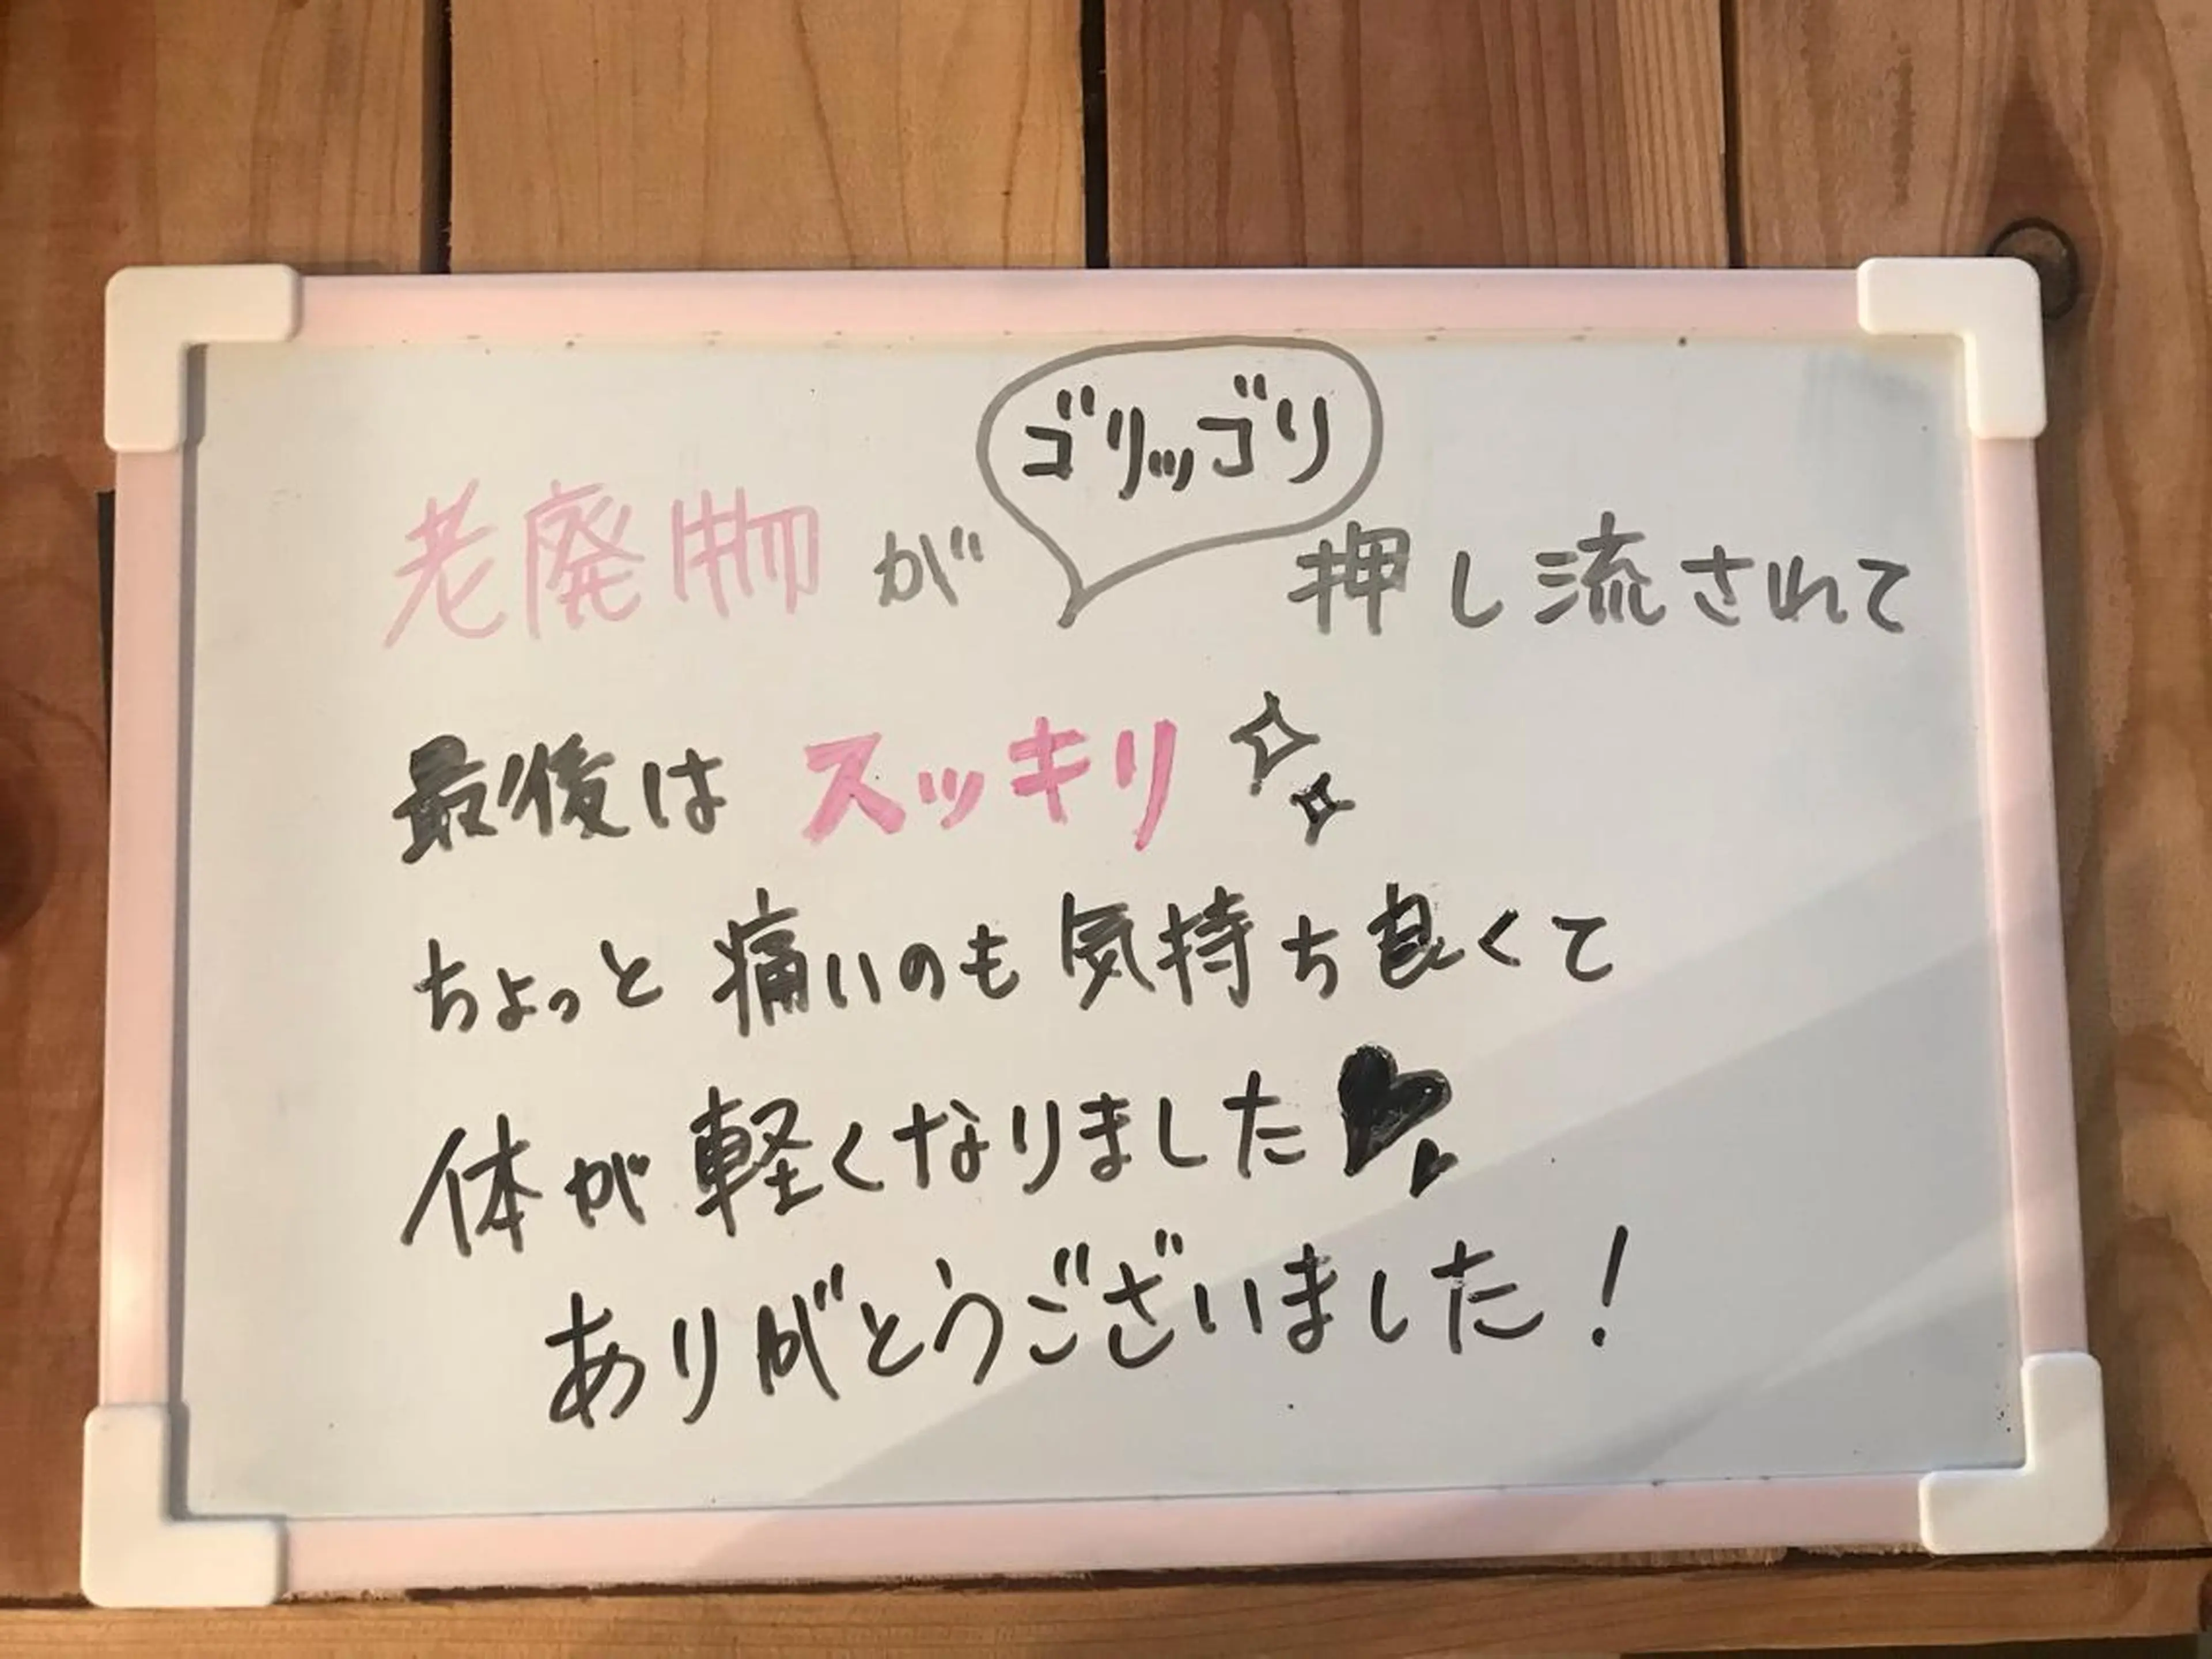 老廃物が ゴリッゴリ 押し流されて
最後はスッキリ
ちょっと痛いのも気持ち良くて
体が軽くなりました
ありがとうございました!